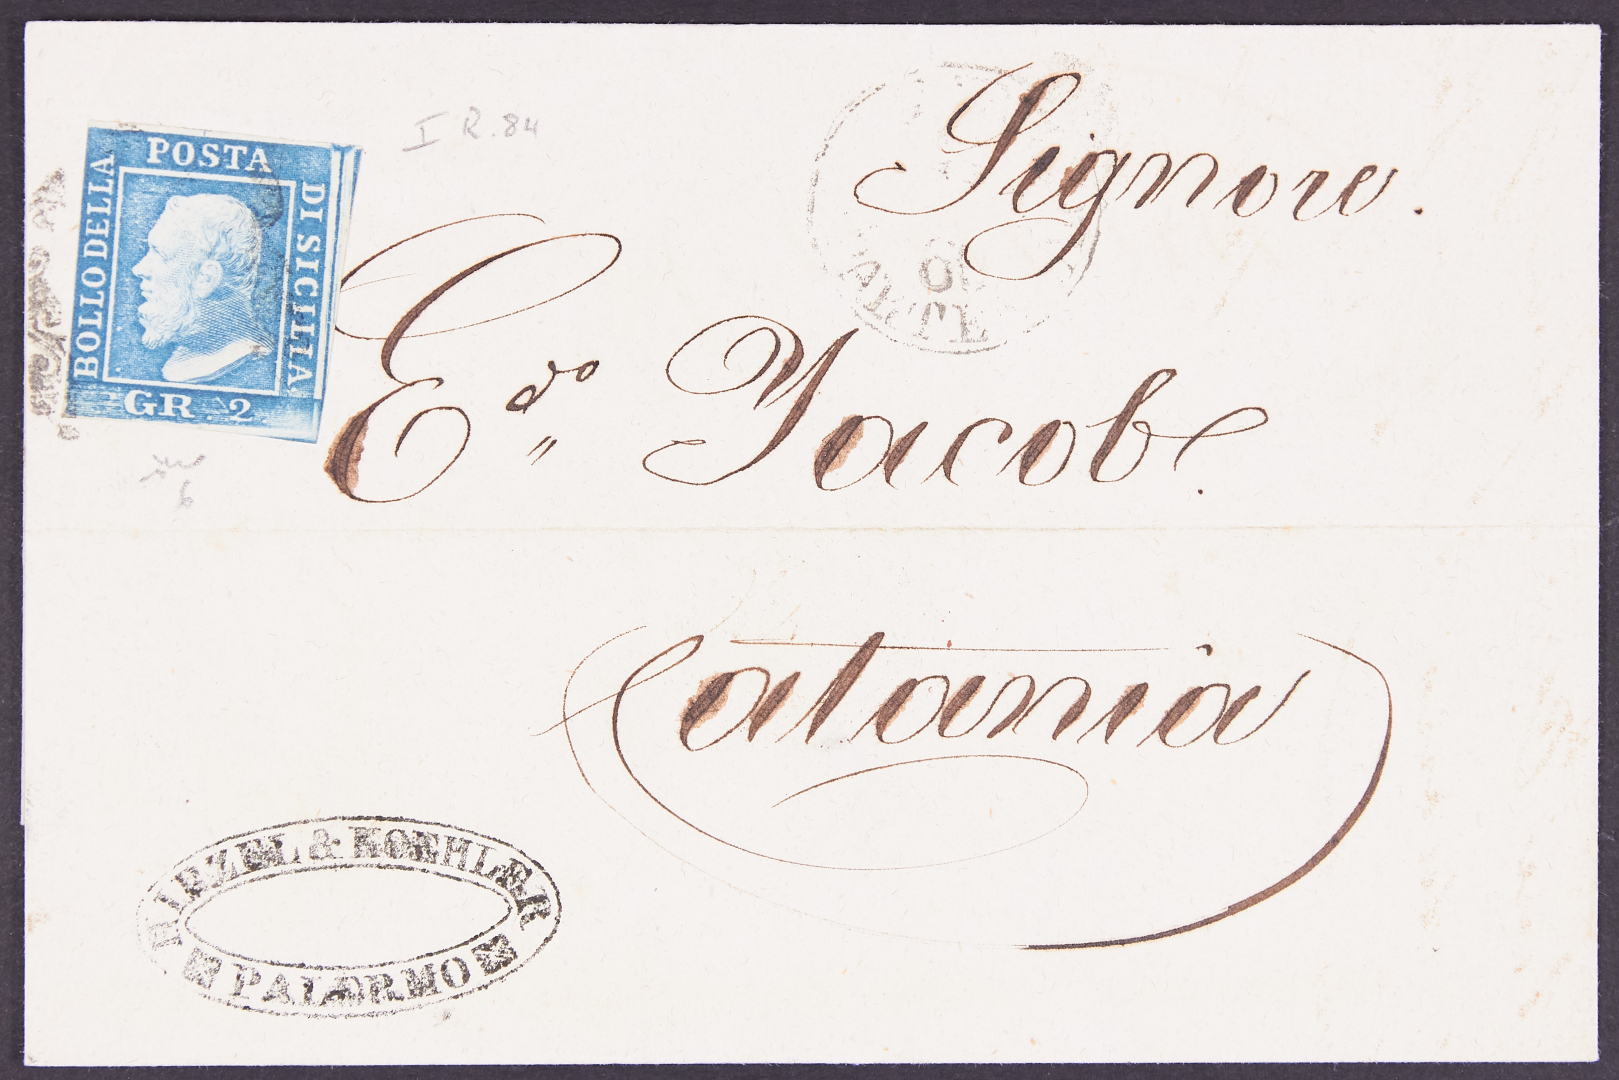 I R. 84
POSTA
BOLLO DELLA
DI SICILIA
GR. 2
Signore.
Edo Jacob.
Catania
6
& KOEHLER
PALERMO